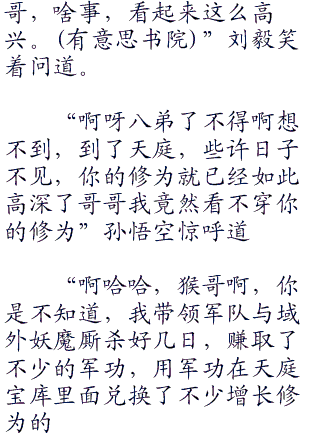 哥，啥事，看起来这么高
兴。(有意思书院)”刘毅笑
着问道。
“啊呀八弟了不得啊想
不到，到了天庭，些许日子
不见，你的修为就已经如此
高深了哥哥我竟然看不穿你
的修为”孙悟空惊呼道
“啊哈哈，猴哥啊，你
是不知道，我带领军队与域
外妖魔厮杀好几日，赚取了
不少的军功，用军功在天庭
宝库里面兑换了不少增长修
为的